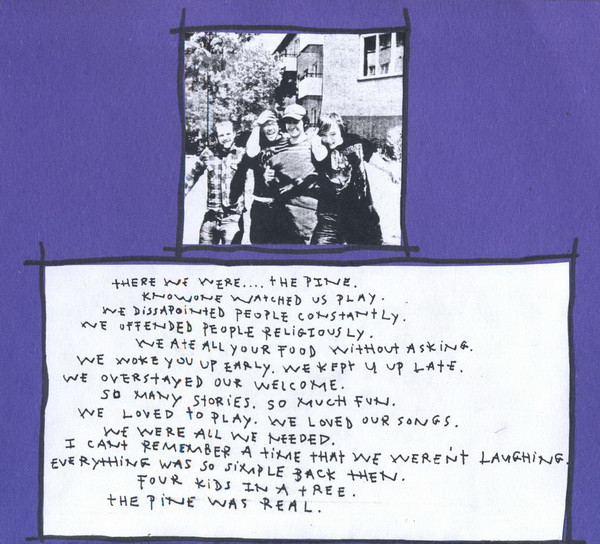 THERE WE WERE.... THE PINE.
KNOWONE WATCHED US PLAY.
WE DISSAPOINTED PEOPLE CONSTANTLY.
WE OFFENDED PEOPLE RELIGIOUSLY.
WE ATE ALL YOUR FOOD WITHOUT ASKING.
WE WOKE YOU UP EARLY. WE KEPT U UP LATE.
WE OVERSTAYED OUR WELCOME.
SO MANY STORIES. SO MUCH FUN.
WE LOVED TO PLAY. WE LOVED OUR SONGS.
WE WERE ALL WE NEEDED.
I CANT REMEMBER A TIME THAT WE WEREN'T LAUGHING.
EVERYTHING WAS SO SIMPLE BACK THEN.
FOUR KIDS IN A TREE.
THE PINE WAS REAL.